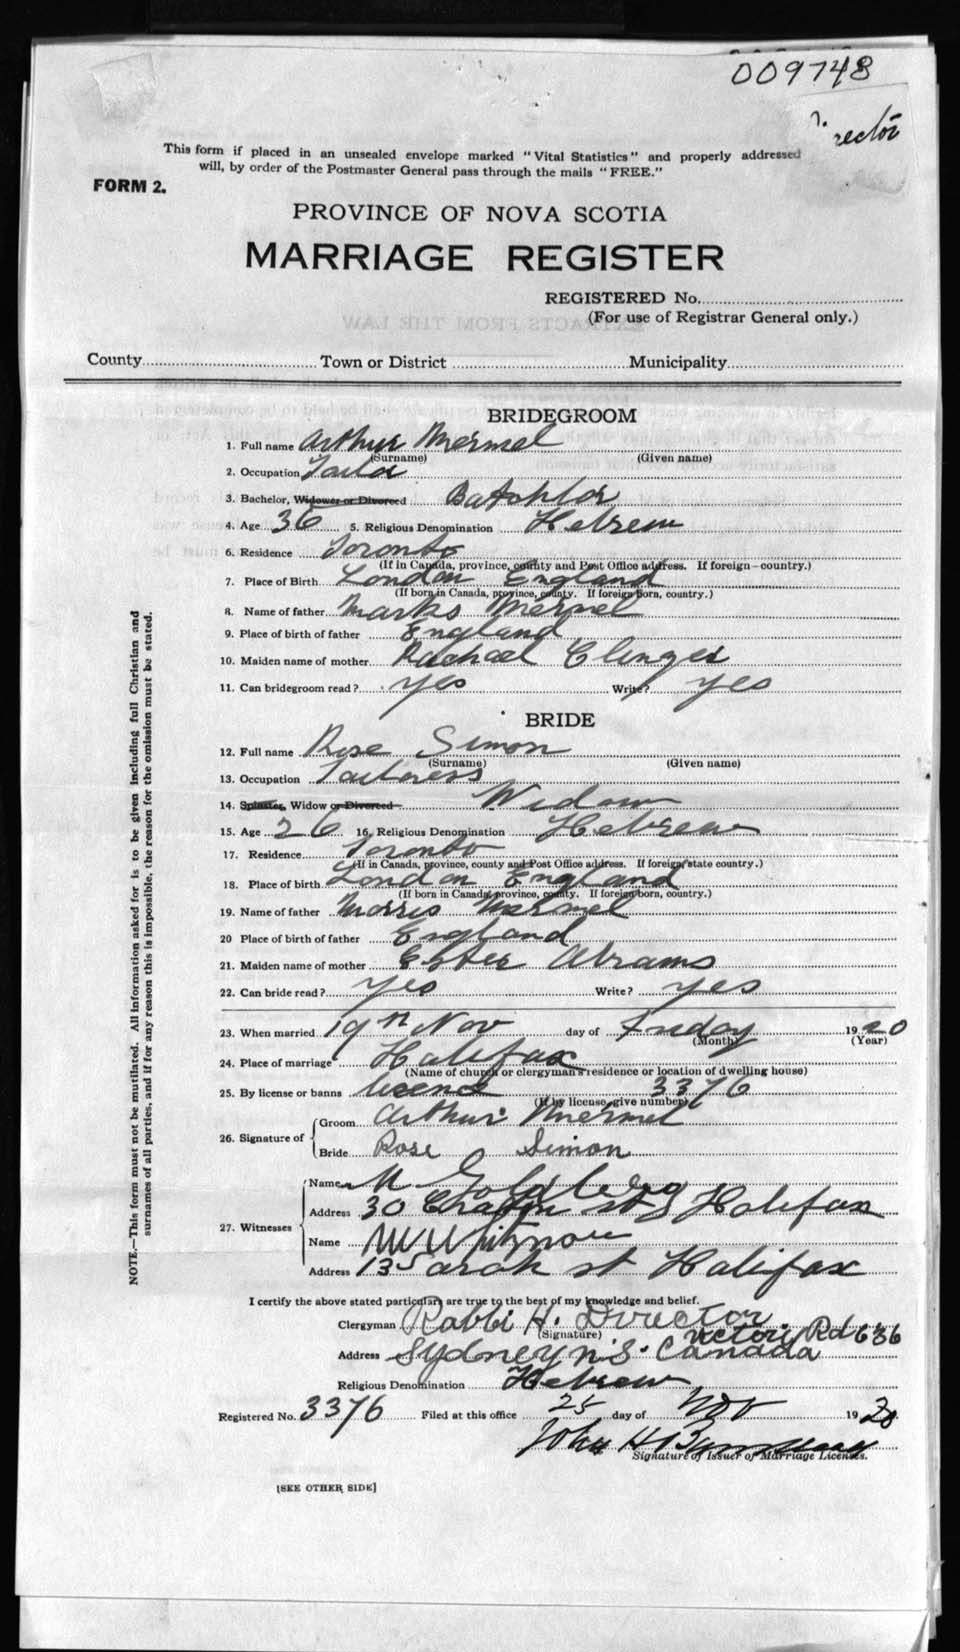 009748
rector
This form if placed in an unsealed envelope marked "Vital Statistics" and properly addressed
will, by order of the Postmaster General pass through the mails "FREE."
FORM 2.
PROVINCE OF NOVA SCOTIA
MARRIAGE REGISTER
REGISTERED No.
(For use of Registrar General only.)
EXTRACTS FROM THE LAW
County Town or District Municipality
BRIDEGROOM
1. Full name Arthur Mermel
(Surname) (Given name)
2. Occupation Tailor
3. Bachelor, Widower or Divorced Batchlor
4. Age 36 5. Religious Denomination Hebrew
6. Residence Toronto
(If in Canada, province, county and Post Office address. If foreign—country.)
7. Place of Birth London England
(If born in Canada, province, county. If foreign born, country.)
8. Name of father Marks Mermel
9. Place of birth of father England
10. Maiden name of mother Rachael
11. Can bridegroom read? yes Write? yes
BRIDE
12. Full name Rose Simon
(Surname) (Given name)
13. Occupation Tailoress
14. Spinster, Widow or Divorced Widow
15. Age 26 16. Religious Denomination Hebrew
17. Residence Toronto
(If in Canada, province, county and Post Office address. If foreign state country.)
18. Place of birth London England
(If born in Canada province, county. If foreign born, country.)
19. Name of father Morris Mermel
20 Place of birth of father England
21. Maiden name of mother Ester Abrams
22. Can bride read? yes Write? yes
23. When married 19th Nov day of Friday 1920
(Month) (Year)
24. Place of marriage Halifax
(Name of church or clergyman's residence or location of dwelling house)
25. By license or banns license 3376
(If by license, give number)
26. Signature of Groom Arthur Mermel
Bride Rose Simon
27. Witnesses Name M Goldberg
Address 30 st Halifax
Name
Address 13 Sarah st Halifax
I certify the above stated particulars are true to the best of my knowledge and belief.
Clergyman Rabbi H. Director
(Signature) Victori Rd 636
Address Sydney N.S. Canada
Religious Denomination Hebrew
Registered No. 3376 Filed at this office 25 day of Nov 1920
John H
Signature of Issuer of Marriage Licenses.
[SEE OTHER SIDE]
NOTE.—This form must not be mutilated. All information asked for is to be given including full Christian and
surnames of all parties, and if for any reason this is impossible, the reason for the omission must be stated.